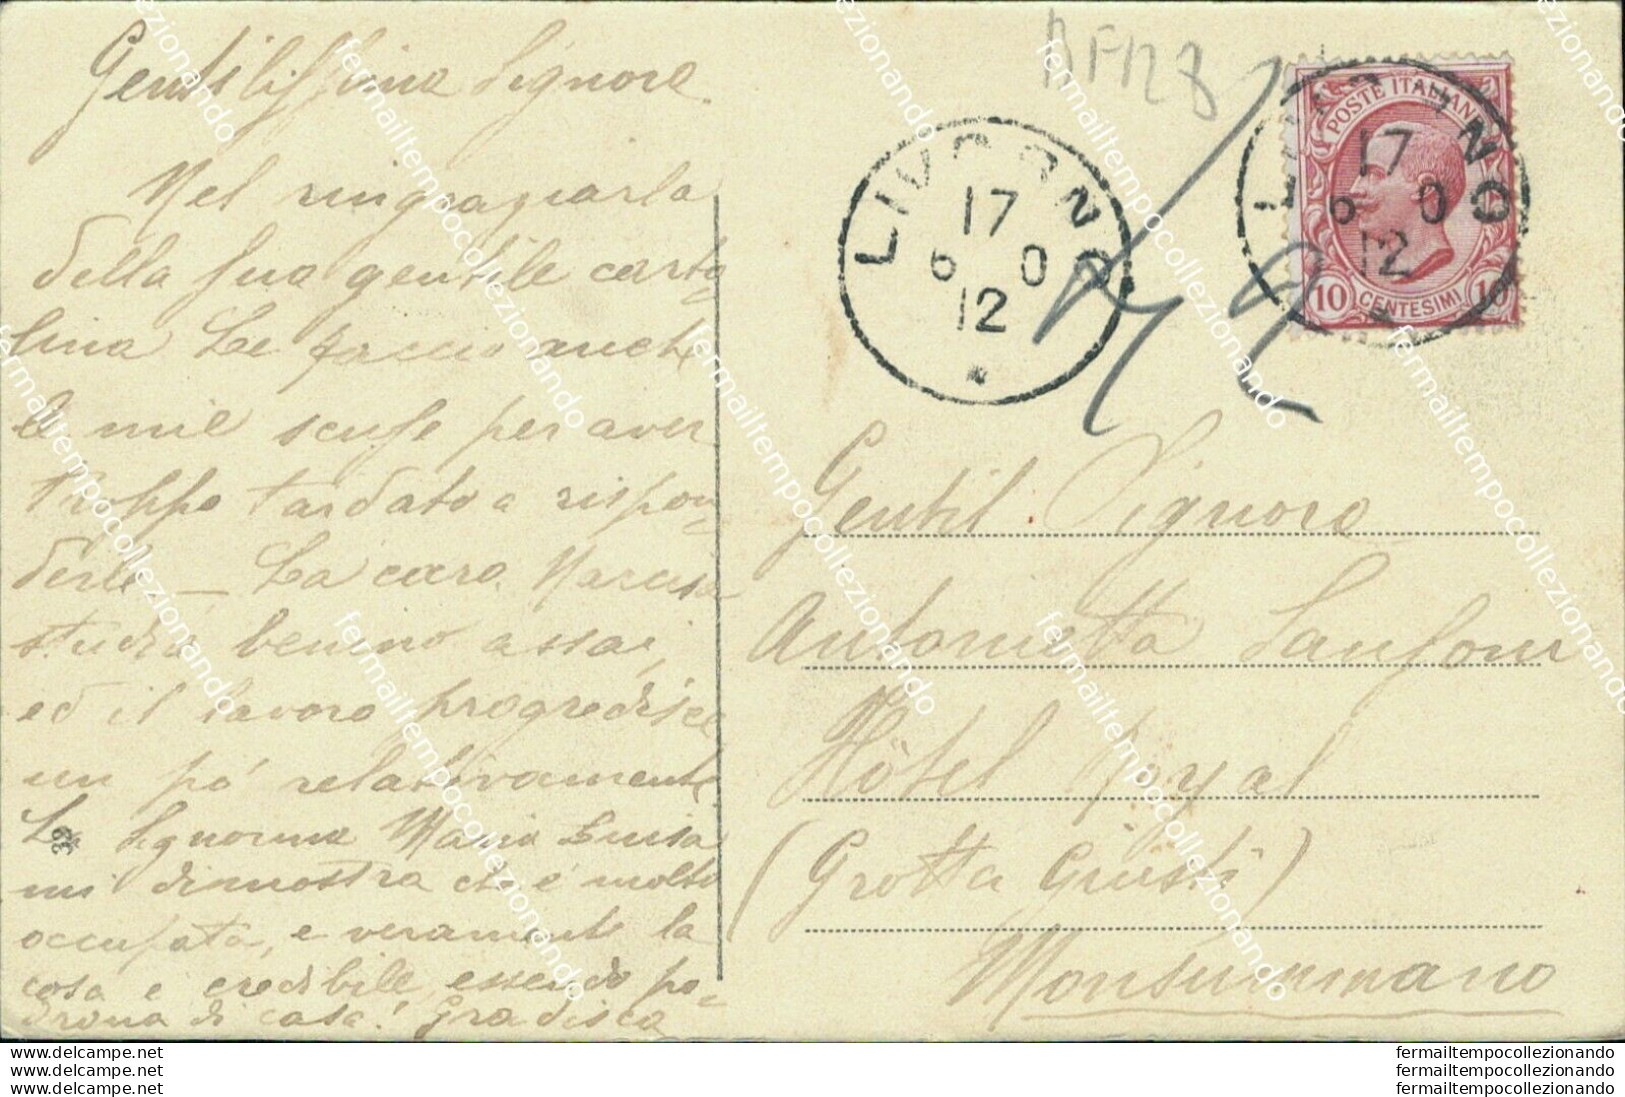 Gentilissima Signora
Nel ringraziarla
della sua gentile carto=
lina Le faccio anche
le mie scuse per aver
troppo tardato a rispon=
derle — La cara Narcisa
studia benino assai,
ed il lavoro progredisce
un pò relativamente
La Signorina Maria Luisa
mi dimostra che è molto
occupata, e veramente la
cosa è credibile, essendo pa=
drona di casa! Gradisca
39
BF128
LIVORNO
17
6 0
12
LIVORNO
17
6 0
12
POSTE ITALIANE
10 CENTESIMI 10
Gentil. Signora
Antonietta Sanfoni
Hôtel Royal
(Grotta Giusti)
Monsummano
www.delcampe.net
www.delcampe.net
www.delcampe.net
fermailtempocollezionando
fermailtempocollezionando
fermailtempocollezionando